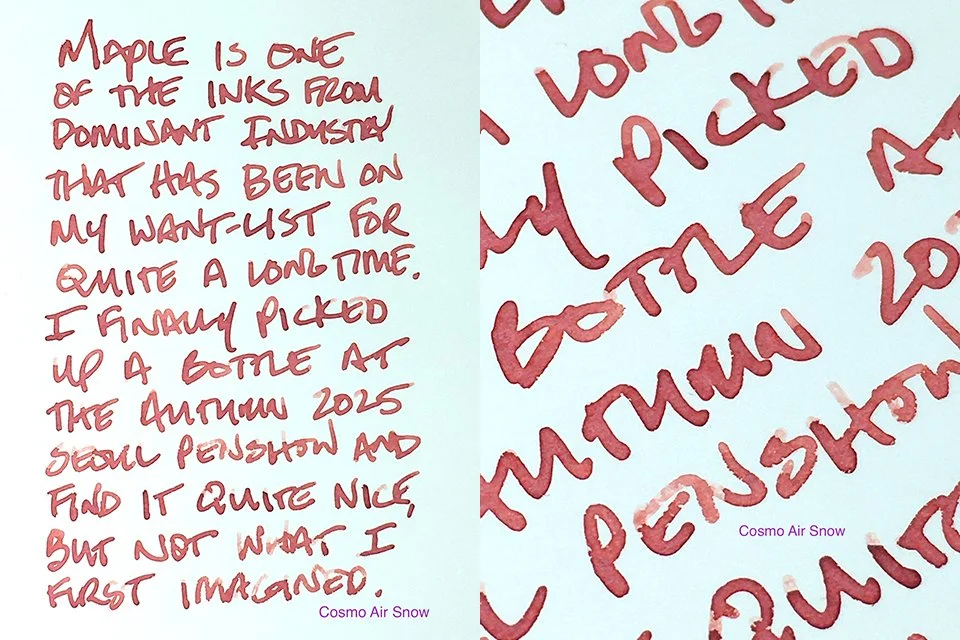 MAPLE IS ONE
OF THE INKS FROM
DOMINANT INDUSTRY
THAT HAS BEEN ON
MY WANT-LIST FOR
QUITE A LONG TIME.
I FINALLY PICKED
UP A BOTTLE AT
THE AUTUMN 2025
SEOUL PENSHOW AND
FIND IT QUITE NICE,
BUT NOT WHAT I
FIRST IMAGINED.
Cosmo Air Snow
LONG
MY PICKED
BOTTLE
AUTUMN 20
PENSHOW
Cosmo Air Snow
QUITE